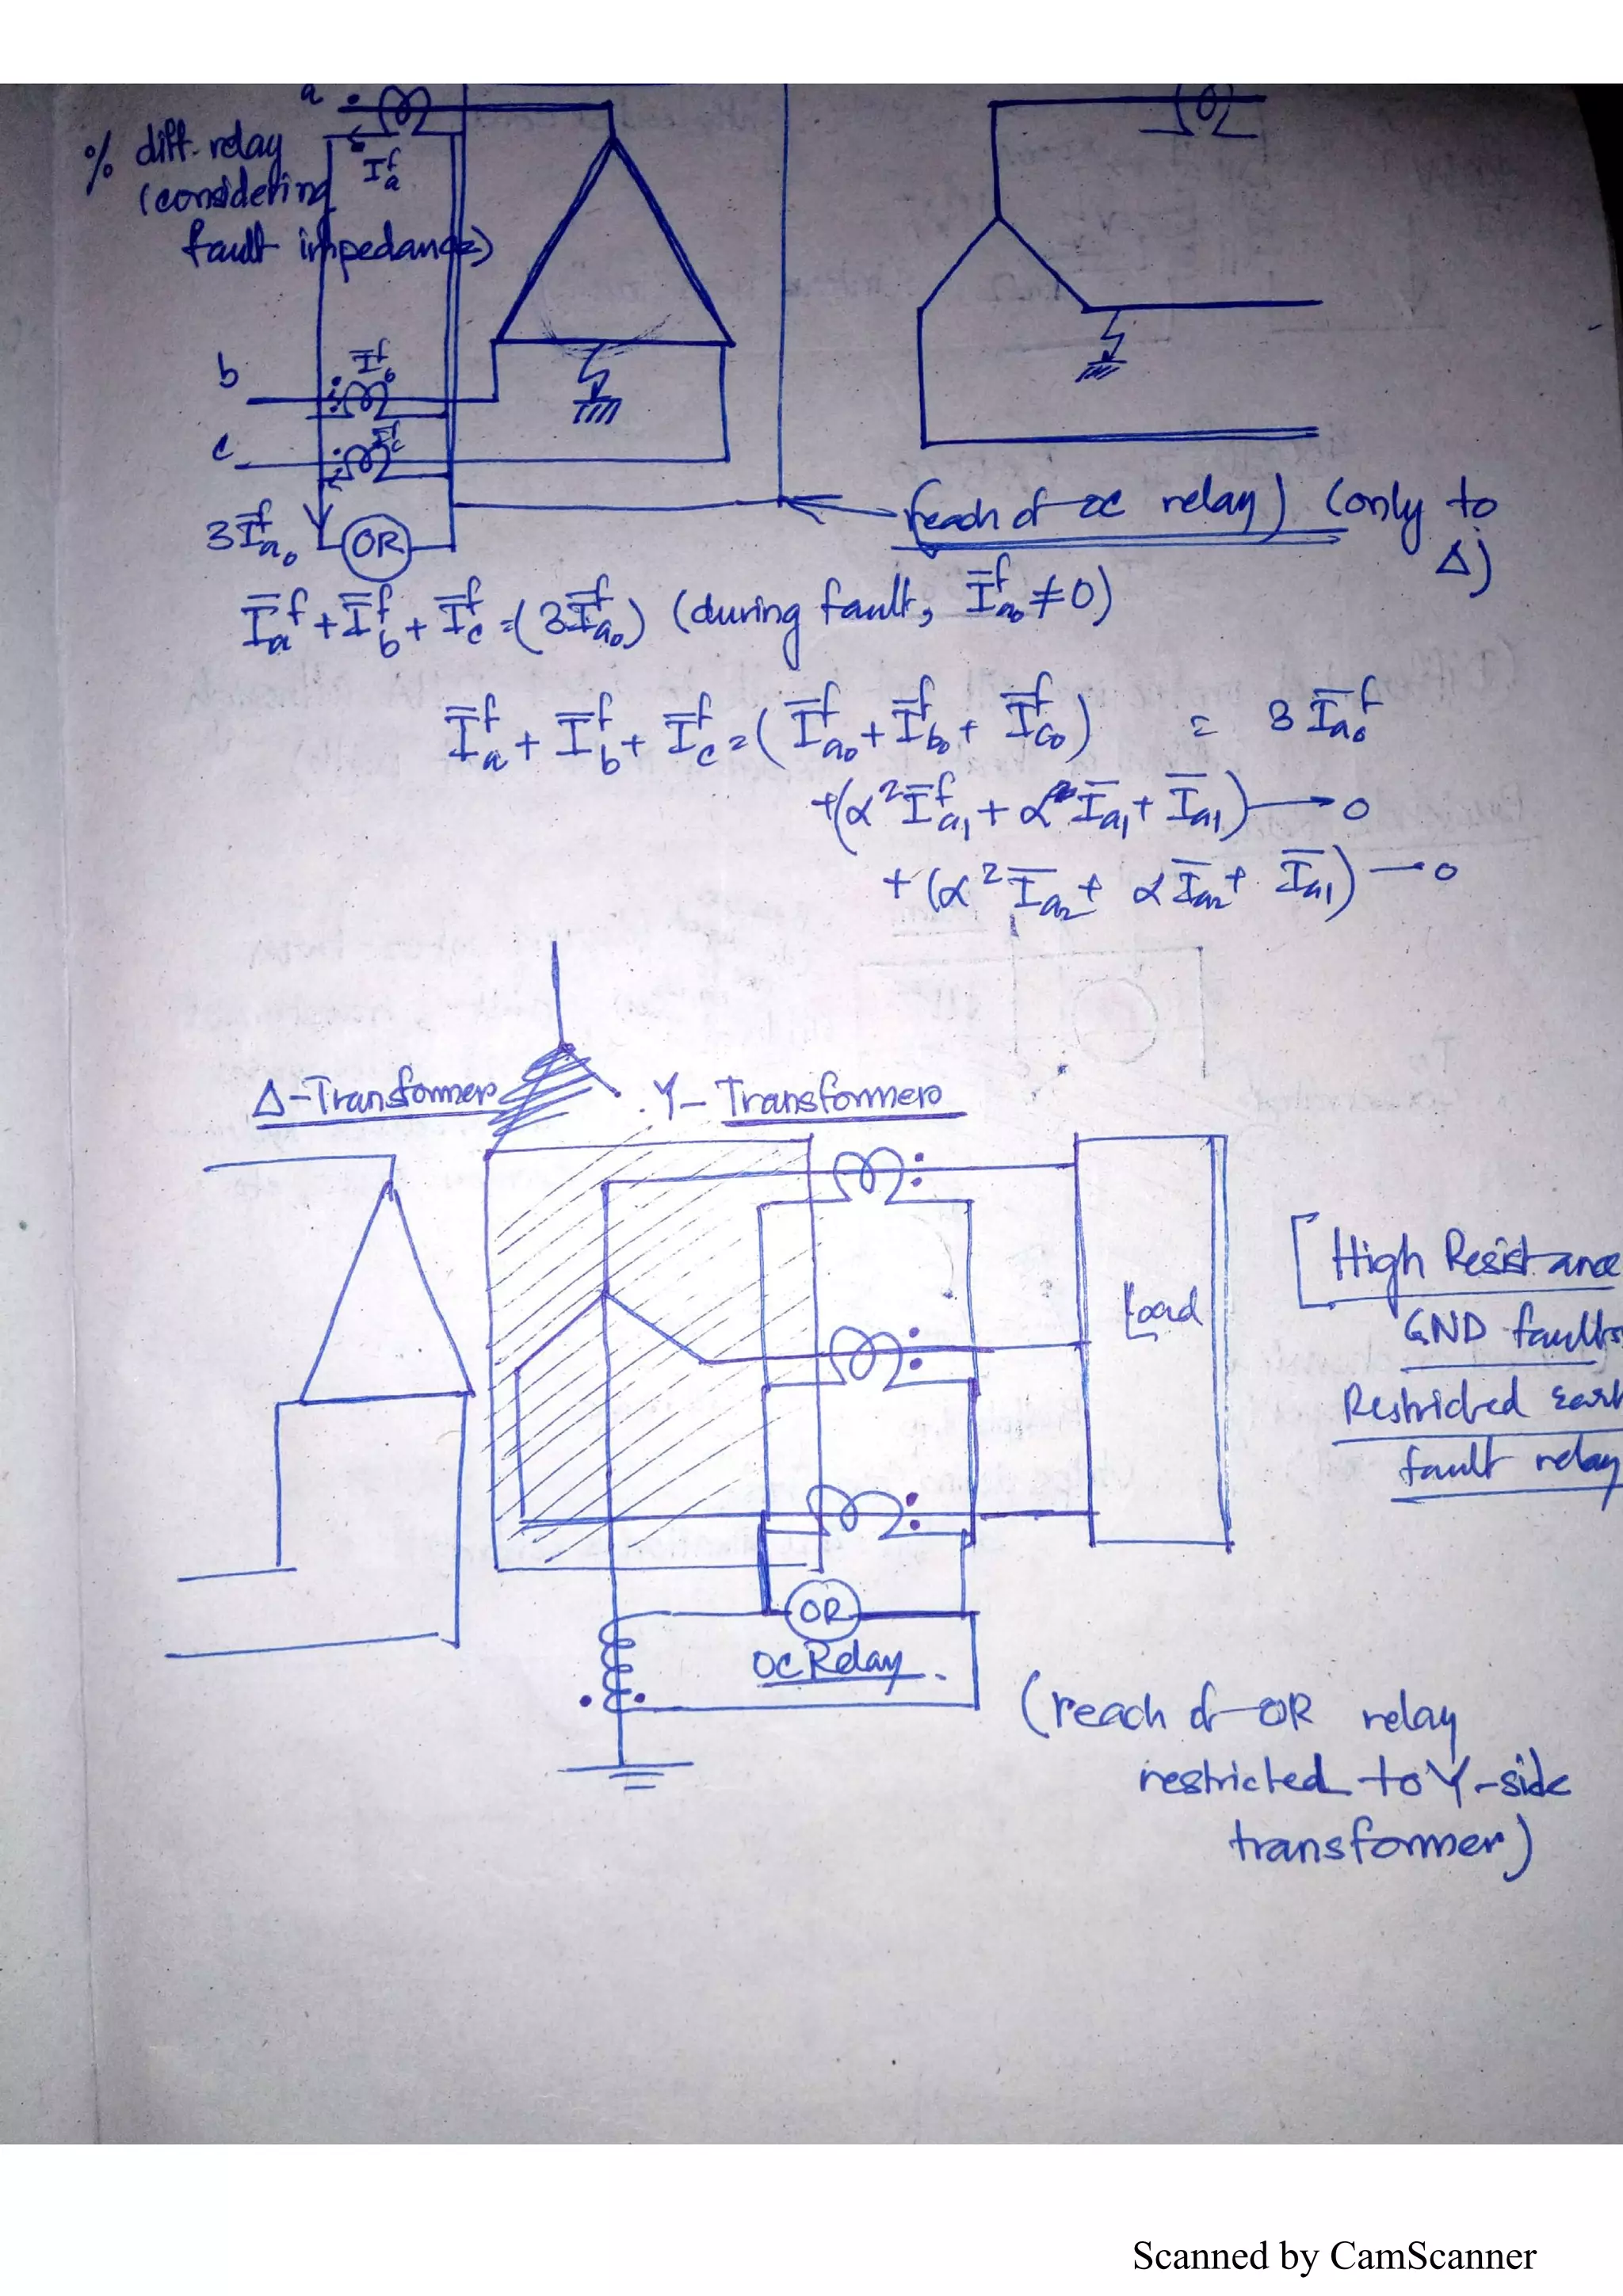 a
% diff. relay
(considering
fault impedance)
I_a^f
b
I_b^f
c
I_c^f
3Ī_a0^f
OR
(reach of oc relay) (only to
Δ)
Ī_a^f + Ī_b^f + Ī_c^f = (3Ī_a0^f) (during fault, Ī_a0^f ≠ 0)
Ī_a^f + Ī_b^f + Ī_c^f = (Ī_a0^f + Ī_b0^f + Ī_c0^f) = 3Ī_a0^f
+(α²Ī_a1^f + αĪ_a1 + Ī_a1) → 0
+(α²Ī_a2 + αĪ_a2 + Ī_a1) → 0
Δ-Transformer
Y-Transformer
Load
[High Resistance
GND faults
Restricted
fault relay
OR
OC Relay.
(reach of OR relay
restricted to Y-side
transformer)
Scanned by CamScanner